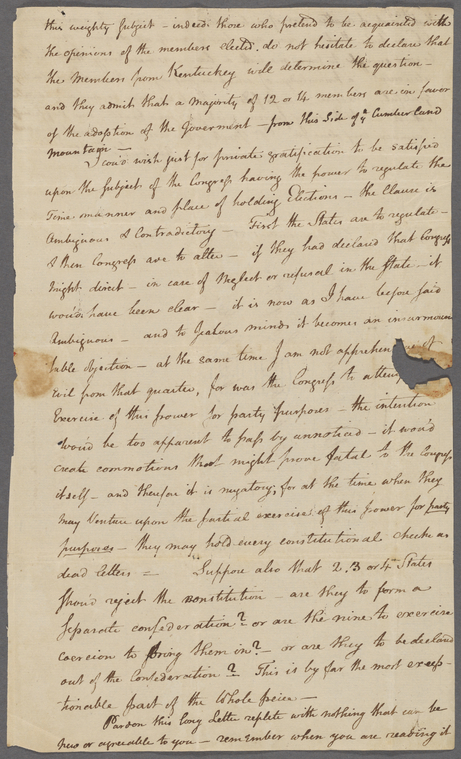 this weighty subject – indeed those who pretend to be acquainted with
the opinions of the members elected, do not hesitate to declare that
the Members from Kentuckey will determine the question –
and they admit that a majority of 12 or 14 members are in favor
of the adoption of the Goverment – from this Side of ye Cumberland
mountain –
I cou'd wish just for private gratification to be satisfied
upon the subject of the Congress having the power to regulate the
Time manner and place of holding Elections – the Clause is
Ambiguous & Contradictory – First the States are to regulate –
& then Congress are to alter – if they had declared that Congress
might direct – in case of Neglect or refusal in the State – it
wou'd have been clear – it is now as I have before said
Ambiguous – and to Jealous minds it becomes an insurmoun
table objection – at the same time I am not of
evil from that quarter, for was the Congress to
Exercise of this power for party purposes – the intention
wou'd be too apparent to pass by unnoticed – it wou'd
create commotions that might prove fatal to the Congress
itself – and therefore it is nugatory, for at the time when they
may Venture upon the partial exercise of this power for party
purposes – they may hold every constitutional check as
dead letters = Suppose also that 2. 3 or 4 States
shou'd reject the constitution – are they to form a
Separate confederation? or are the nine to exercise
coercion to bring them in? – or are they to be declared
out of the Confederation? This is by far the most excep-
tionable part of the whole peice –
Pardon this long Letter replete with nothing that can be
new or agreeable to you – remember when you are reading it